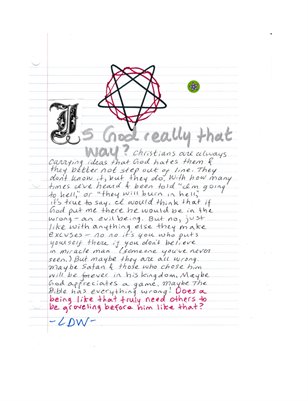 Is God really that
way? Christians are always
carrying ideas that God hates them &
they better not step out of line. They
dont know it, but they do. With how many
times ive heard & been told "im going
to hell," or "they will burn in hell,"
it's true to say. id would think that if
God put me there he would be in the
wrong - an evil being. But no, just
like with anything else they make
excuses - no no it's you who puts
yourself there if you don't believe
in miracle man (someone you've never
seen.) But maybe they are all wrong.
Maybe Satan & those who chose him
will be forever in his kingdom. Maybe
God appreciates a game. Maybe The
Bible has everything wrong! Does a
being like that truly need others to
be groveling before him like that?
-LDW-